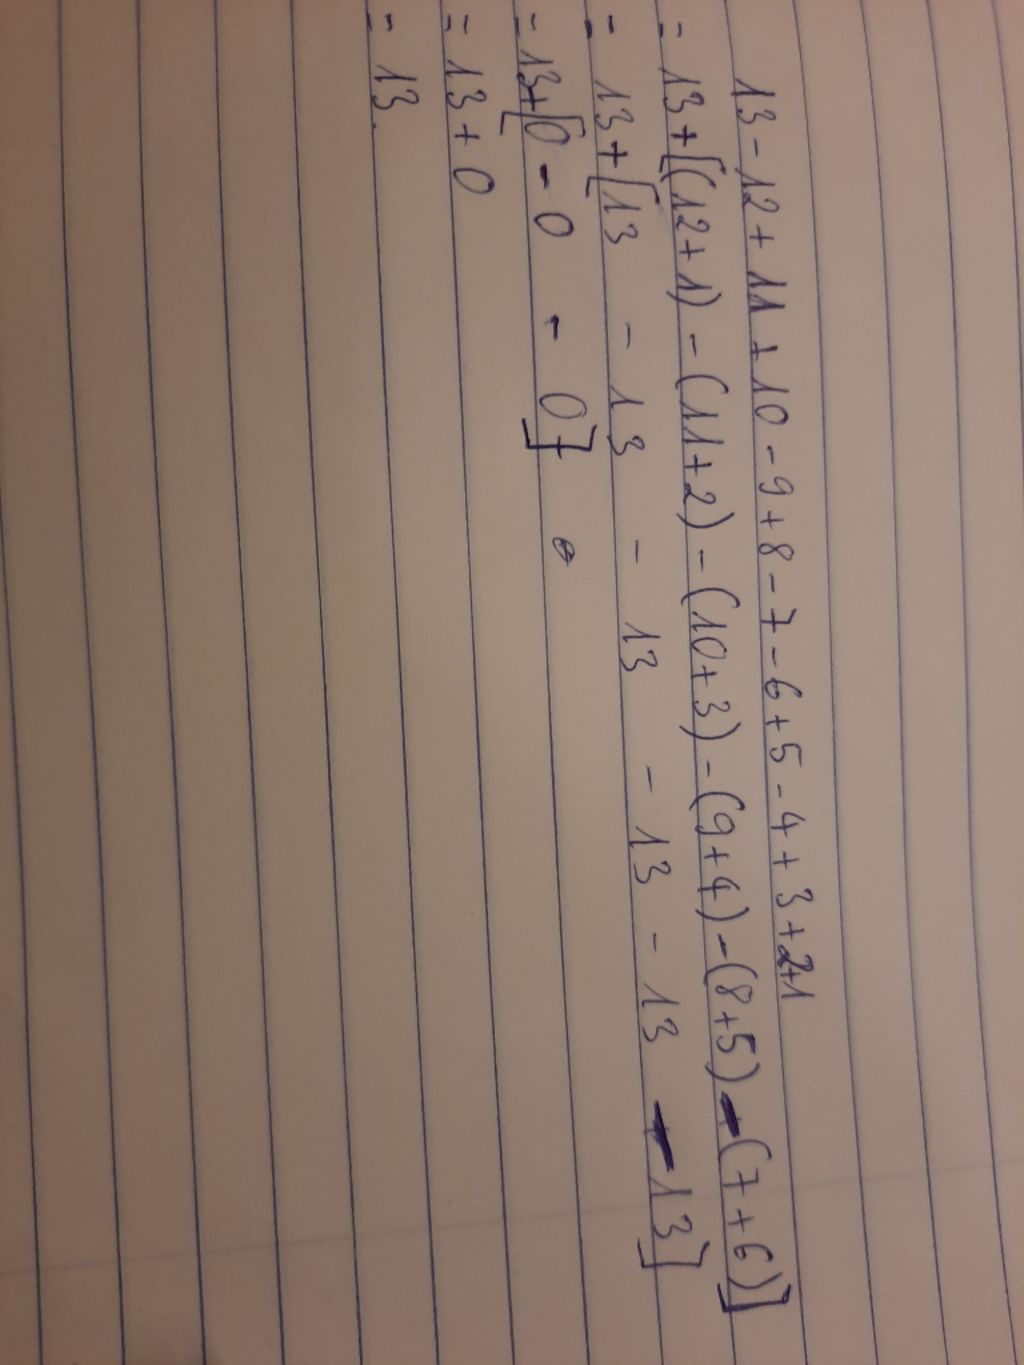 13 - 12 + 11 + 10 - 9 + 8 - 7 - 6 + 5 - 4 + 3 + 2 + 1
= 13 + [(12 + 1) - (11 + 2) - (10 + 3) - (9 + 4) - (8 + 5) - (7 + 6)]
= 13 + [13 - 13 - 13 - 13 - 13 - 13]
= 13 + [0 - 0 - 0] 0
= 13 + 0
= 13.